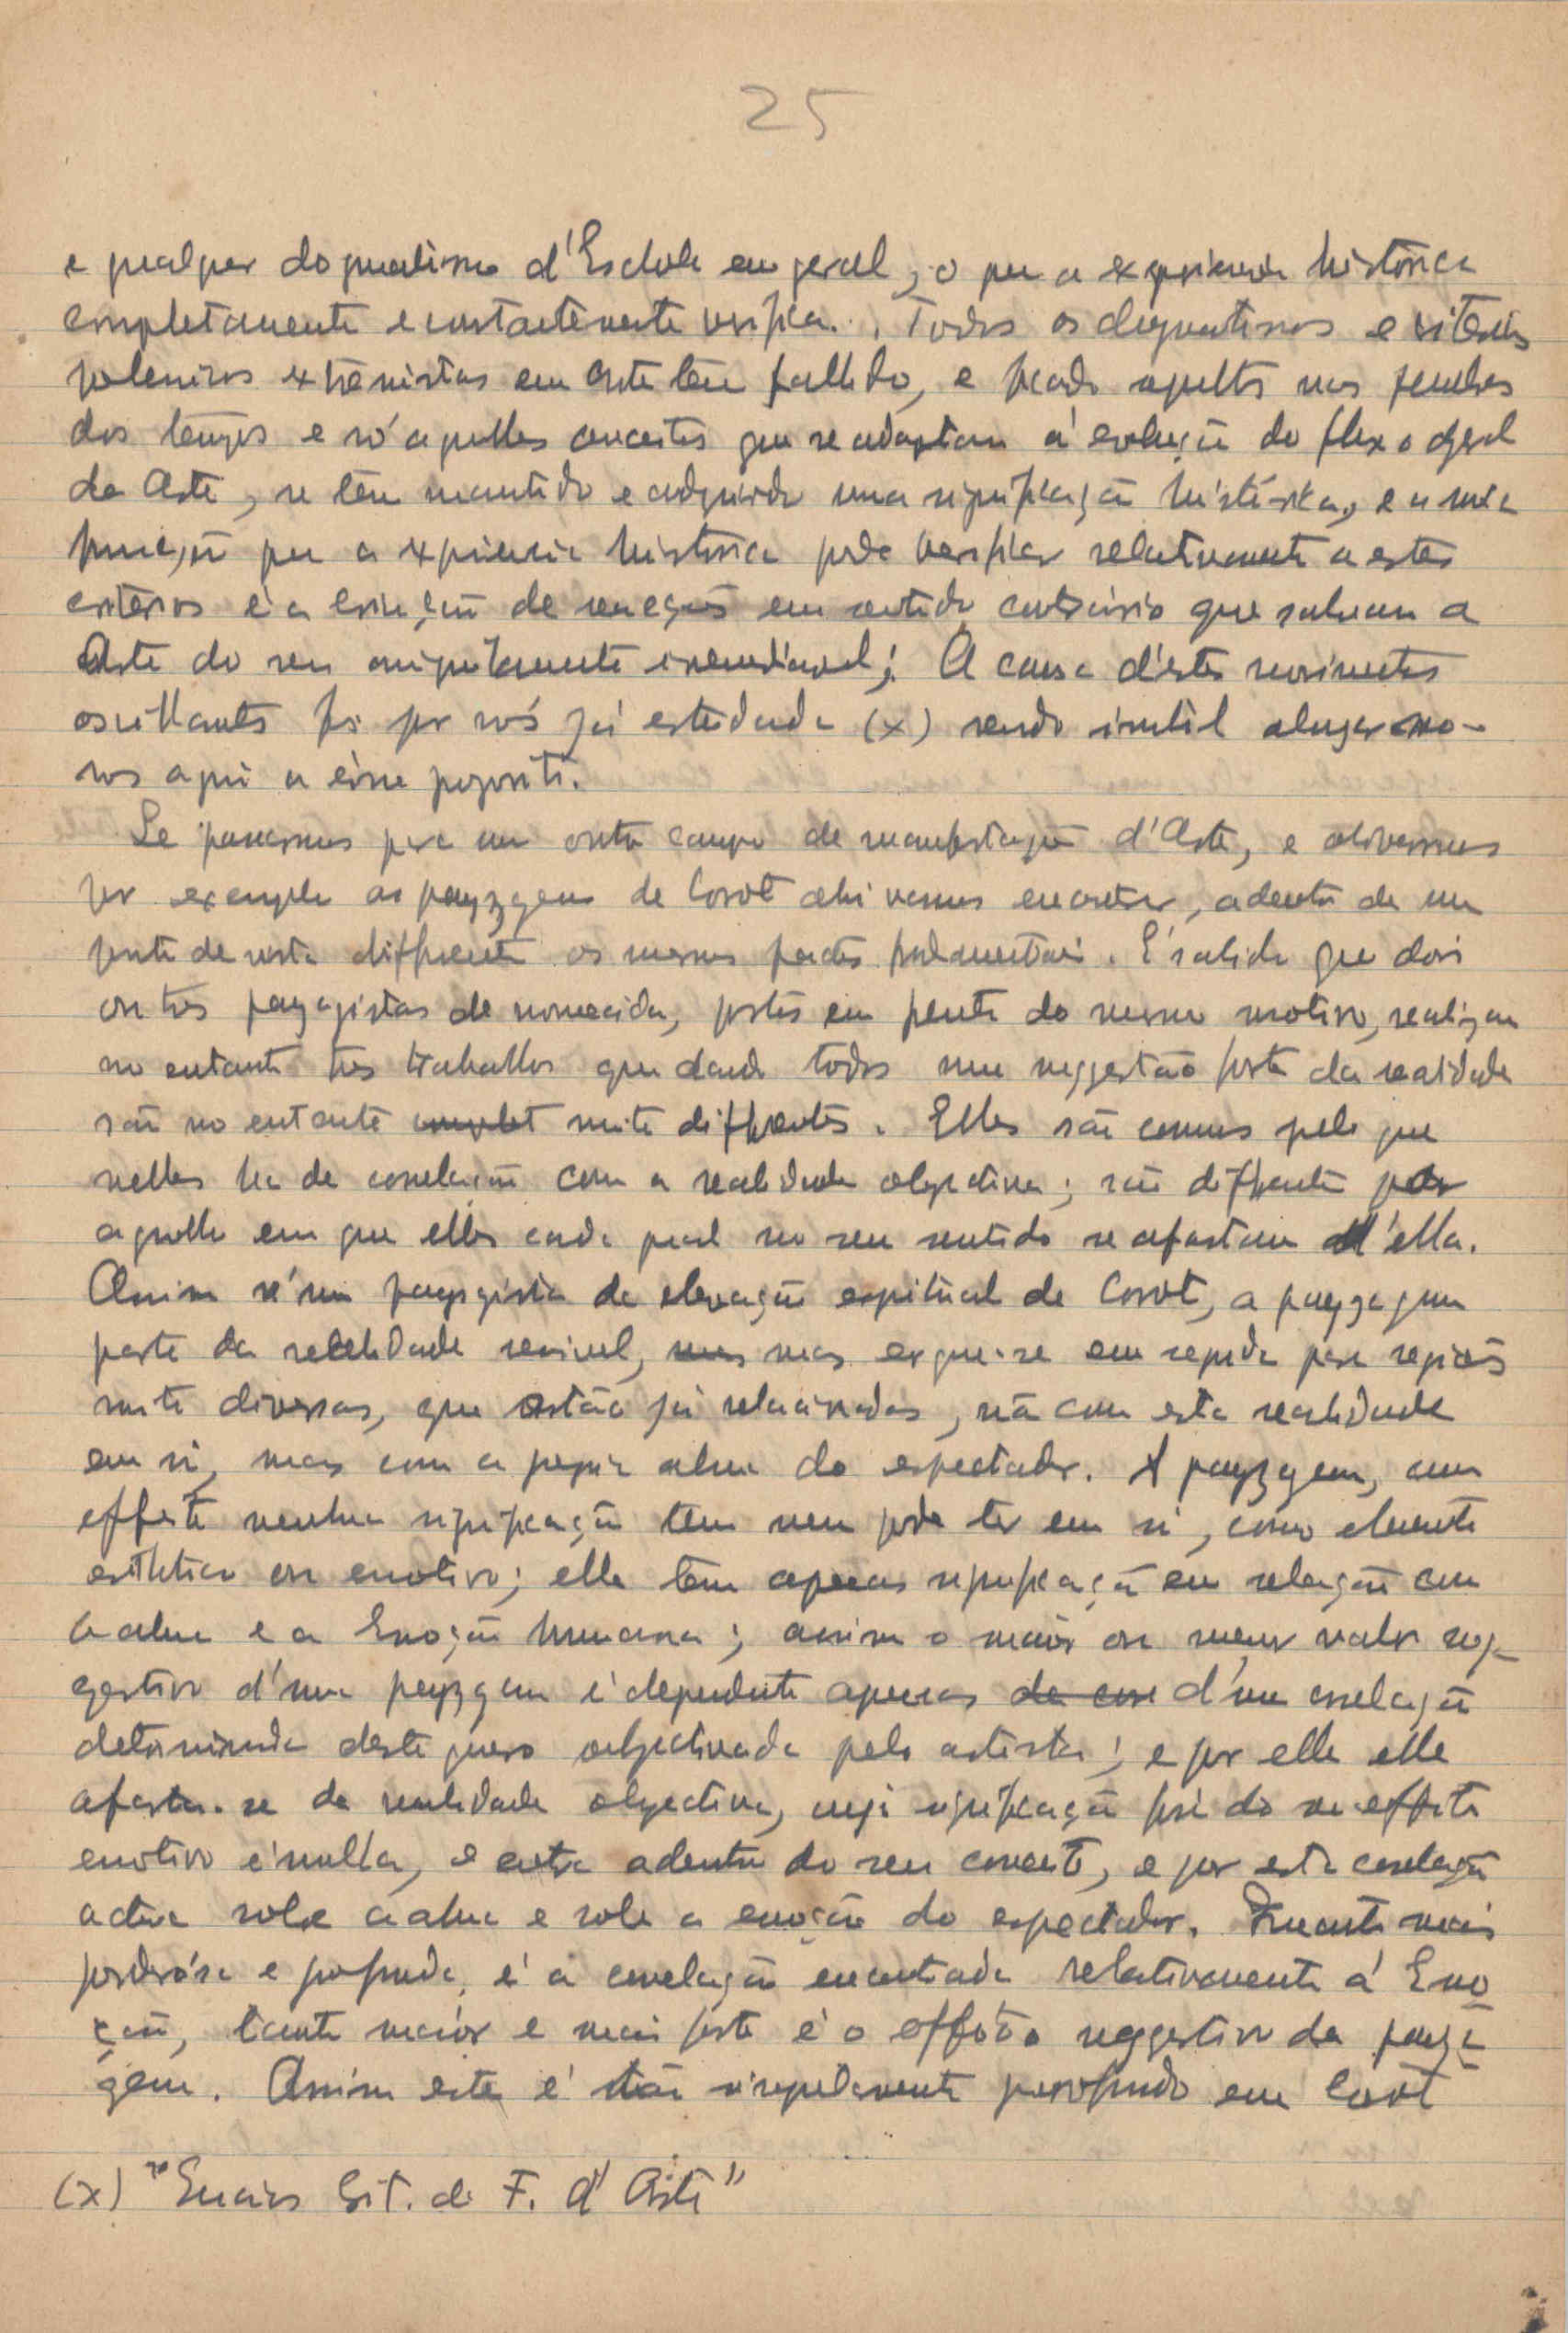 25
e qualquer dogmatismo d'Eschola em geral, o que a experiencia historica
completamente e constantemente verifica. Todos os dogmatismos e criterios
polemicos extremistas em arte têm falhado, e ficado sepultos nas
dos tempos e só aquelles conceitos que se adaptam á evolução do fluxo geral
da Arte, se têm mantido e adquirido uma significação historica, e a unica
funcção que a experiencia historica pode verificar relativamente a estes
criterios é a criação de reacções em sentido contrario que salvam a
Arte do seu aniquilamento irremediavel; A causa d'estes movimentos
oscillantes foi por nós já estudada (x) sendo inutil alongarmo-
nos aqui a êsse proposito.
Se passarmos para um outro campo de manifestação d'Arte, e
por exemplo as payzagens de Corot ahi vamos encontrar, adentro de um
ponto de vista differente os mesmos factos fundamentaes. É sabido que dois
ou tres payzagistas de nomeada, postos em frente do mesmo motivo, realizam
no entanto tres trabalhos que dando todos uma suggestão forte da realidade
são no entanto complet muito differentes. Elles são comuns pelo que
nelles ha de correlação com a realidade objectiva; são differentes por
aquelle em que elles cada qual no seu sentido se afastam d'ella.
Assim n'um payzagista da elevação espiritual de Corot, a payzagem
parte da realidade sensivel, mas mas ergue-se em seguida para regiões
muito diversas, que estão já relacionadas, não com esta realidade
em si, mas com a propria alma do espectador. A payzagem, com
effeito nenhuma significação tem nem pode ter em si, como elemento
esthetico ou emotivo; ella tem apenas significação em relação com
a alma e a Emoção humana; assim o maior ou menor valor sug-
gestivo d'uma payzagem é dependente apenas de cor d'uma correlação
determinada deste genero objectivada pelo artista; e por ella elle
afasta-se da realidade objectiva, cuja significação fóra do seu effeito
emotivo é nulla, e entra adentro do seu conceito, e por esta correlação
actua sobre a alma e sobre a emoção do espectador. Quanto mais
poderósa e profunda, é a correlação encontrada relativamente á Emo
ção, tanto maiór e mais forte é o effeito suggestivo da payza
gem. Assim este é tão singularmente profundo em Corot
(x) "Ensaios Crit. de F. d'Arte"